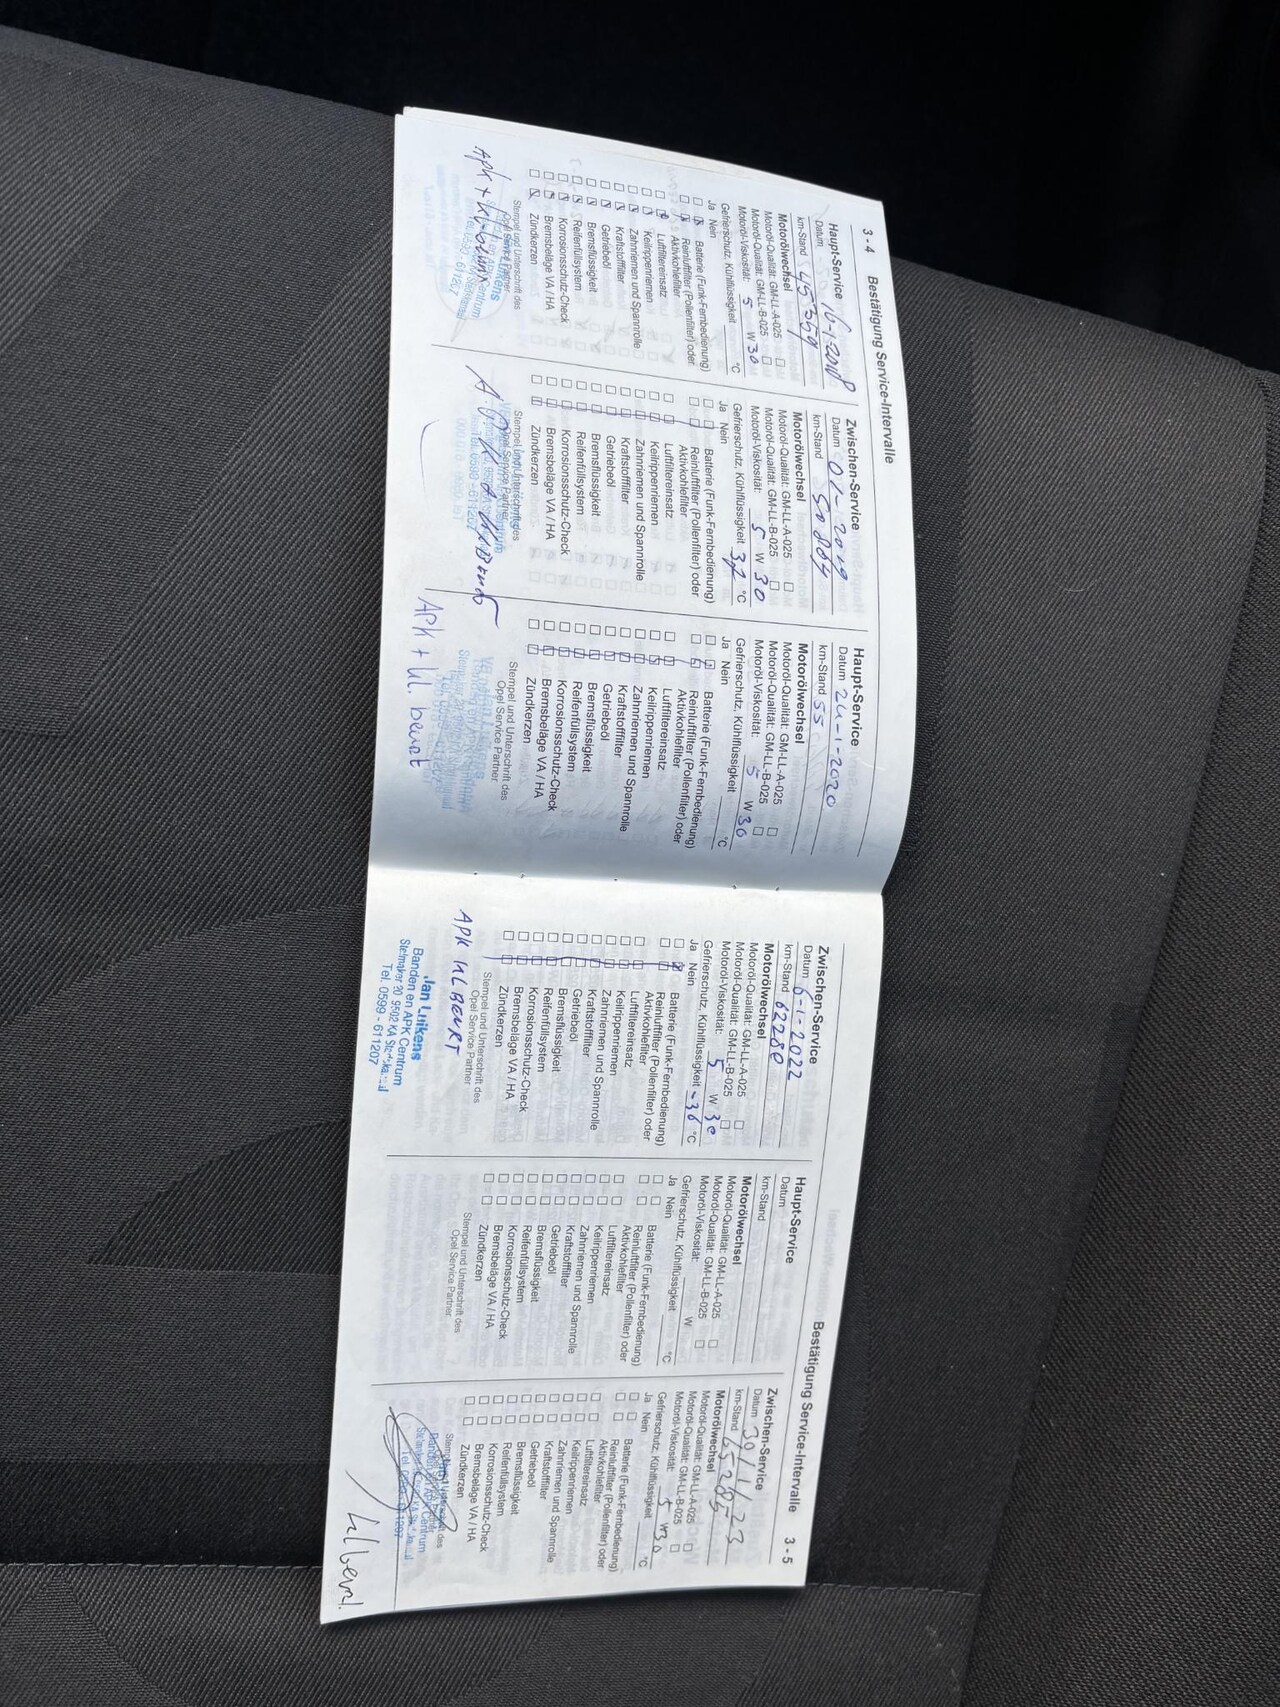 3 - 4 Bestätigung Service-Intervalle
Haupt-Service
Datum 16-1-2018
km-Stand 45359
Motorölwechsel
Motoröl-Qualität: GM-LL-A-025
Motoröl-Qualität: GM-LL-B-025
Motoröl-Viskosität: 5 W 30
Gefrierschutz, Kühlflüssigkeit °C
Ja Nein
Batterie (Funk-Fernbedienung)
Reinluftfilter (Pollenfilter) oder
Aktivkohlefilter
Luftfiltereinsatz
Keilrippenriemen
Zahnriemen und Spannrolle
Kraftstofffilter
Getriebeöl
Bremsflüssigkeit
Reifenfüllsystem
Korrosionsschutz-Check
Bremsbeläge VA / HA
Zündkerzen
Stempel und Unterschrift des
Opel Service Partner
APK +
Zwischen-Service
Datum 01-2019
km-Stand 50884
Motorölwechsel
Motoröl-Qualität: GM-LL-A-025
Motoröl-Qualität: GM-LL-B-025
Motoröl-Viskosität: 5 W 30
Gefrierschutz, Kühlflüssigkeit 37 °C
Ja Nein
Batterie (Funk-Fernbedienung)
Reinluftfilter (Pollenfilter) oder
Aktivkohlefilter
Luftfiltereinsatz
Keilrippenriemen
Zahnriemen und Spannrolle
Kraftstofffilter
Getriebeöl
Bremsflüssigkeit
Reifenfüllsystem
Korrosionsschutz-Check
Bremsbeläge VA / HA
Zündkerzen
Stempel und Unterschrift des
Opel Service Partner
Haupt-Service
Datum 24-1-2020
km-Stand 55
Motorölwechsel
Motoröl-Qualität: GM-LL-A-025
Motoröl-Qualität: GM-LL-B-025
Motoröl-Viskosität: 5 W 30
Gefrierschutz, Kühlflüssigkeit °C
Ja Nein
Batterie (Funk-Fernbedienung)
Reinluftfilter (Pollenfilter) oder
Aktivkohlefilter
Luftfiltereinsatz
Keilrippenriemen
Zahnriemen und Spannrolle
Kraftstofffilter
Getriebeöl
Bremsflüssigkeit
Reifenfüllsystem
Korrosionsschutz-Check
Bremsbeläge VA / HA
Zündkerzen
Stempel und Unterschrift des
Opel Service Partner
APK + kl. beurt
Bestätigung Service-Intervalle 3 - 5
Zwischen-Service
Datum 6-1-2022
km-Stand 62280
Motorölwechsel
Motoröl-Qualität: GM-LL-A-025
Motoröl-Qualität: GM-LL-B-025
Motoröl-Viskosität: 5 W 30
Gefrierschutz, Kühlflüssigkeit -36 °C
Ja Nein
Batterie (Funk-Fernbedienung)
Reinluftfilter (Pollenfilter) oder
Aktivkohlefilter
Luftfiltereinsatz
Keilrippenriemen
Zahnriemen und Spannrolle
Kraftstofffilter
Getriebeöl
Bremsflüssigkeit
Reifenfüllsystem
Korrosionsschutz-Check
Bremsbeläge VA / HA
Zündkerzen
Stempel und Unterschrift des
Opel Service Partner
APK KL BEURT
Jan Luikens
Banden en APK Centrum
20 9502 KA
Tel. 0599 - 611207
Haupt-Service
Datum
km-Stand
Motorölwechsel
Motoröl-Qualität: GM-LL-A-025
Motoröl-Qualität: GM-LL-B-025
Motoröl-Viskosität: W
Gefrierschutz, Kühlflüssigkeit °C
Ja Nein
Batterie (Funk-Fernbedienung)
Reinluftfilter (Pollenfilter) oder
Aktivkohlefilter
Luftfiltereinsatz
Keilrippenriemen
Zahnriemen und Spannrolle
Kraftstofffilter
Getriebeöl
Bremsflüssigkeit
Reifenfüllsystem
Korrosionsschutz-Check
Bremsbeläge VA / HA
Zündkerzen
Stempel und Unterschrift des
Opel Service Partner
Zwischen-Service
Datum 30/11/23
km-Stand 65285
Motorölwechsel
Motoröl-Qualität: GM-LL-A-025
Motoröl-Qualität: GM-LL-B-025
Motoröl-Viskosität: 5 W 30
Gefrierschutz, Kühlflüssigkeit °C
Ja Nein
Batterie (Funk-Fernbedienung)
Reinluftfilter (Pollenfilter) oder
Aktivkohlefilter
Luftfiltereinsatz
Keilrippenriemen
Zahnriemen und Spannrolle
Kraftstofffilter
Getriebeöl
Bremsflüssigkeit
Reifenfüllsystem
Korrosionsschutz-Check
Bremsbeläge VA / HA
Zündkerzen